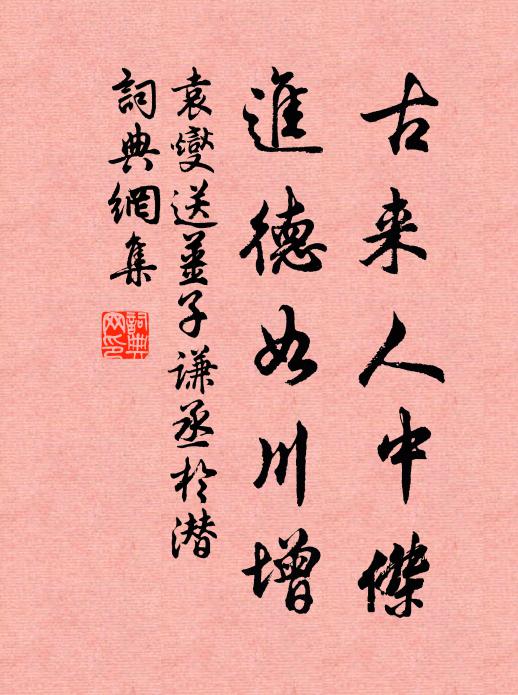 古来人中傑
進德如川增
袁燮送姜子謙丞於潜
詞典網集
詞典網印